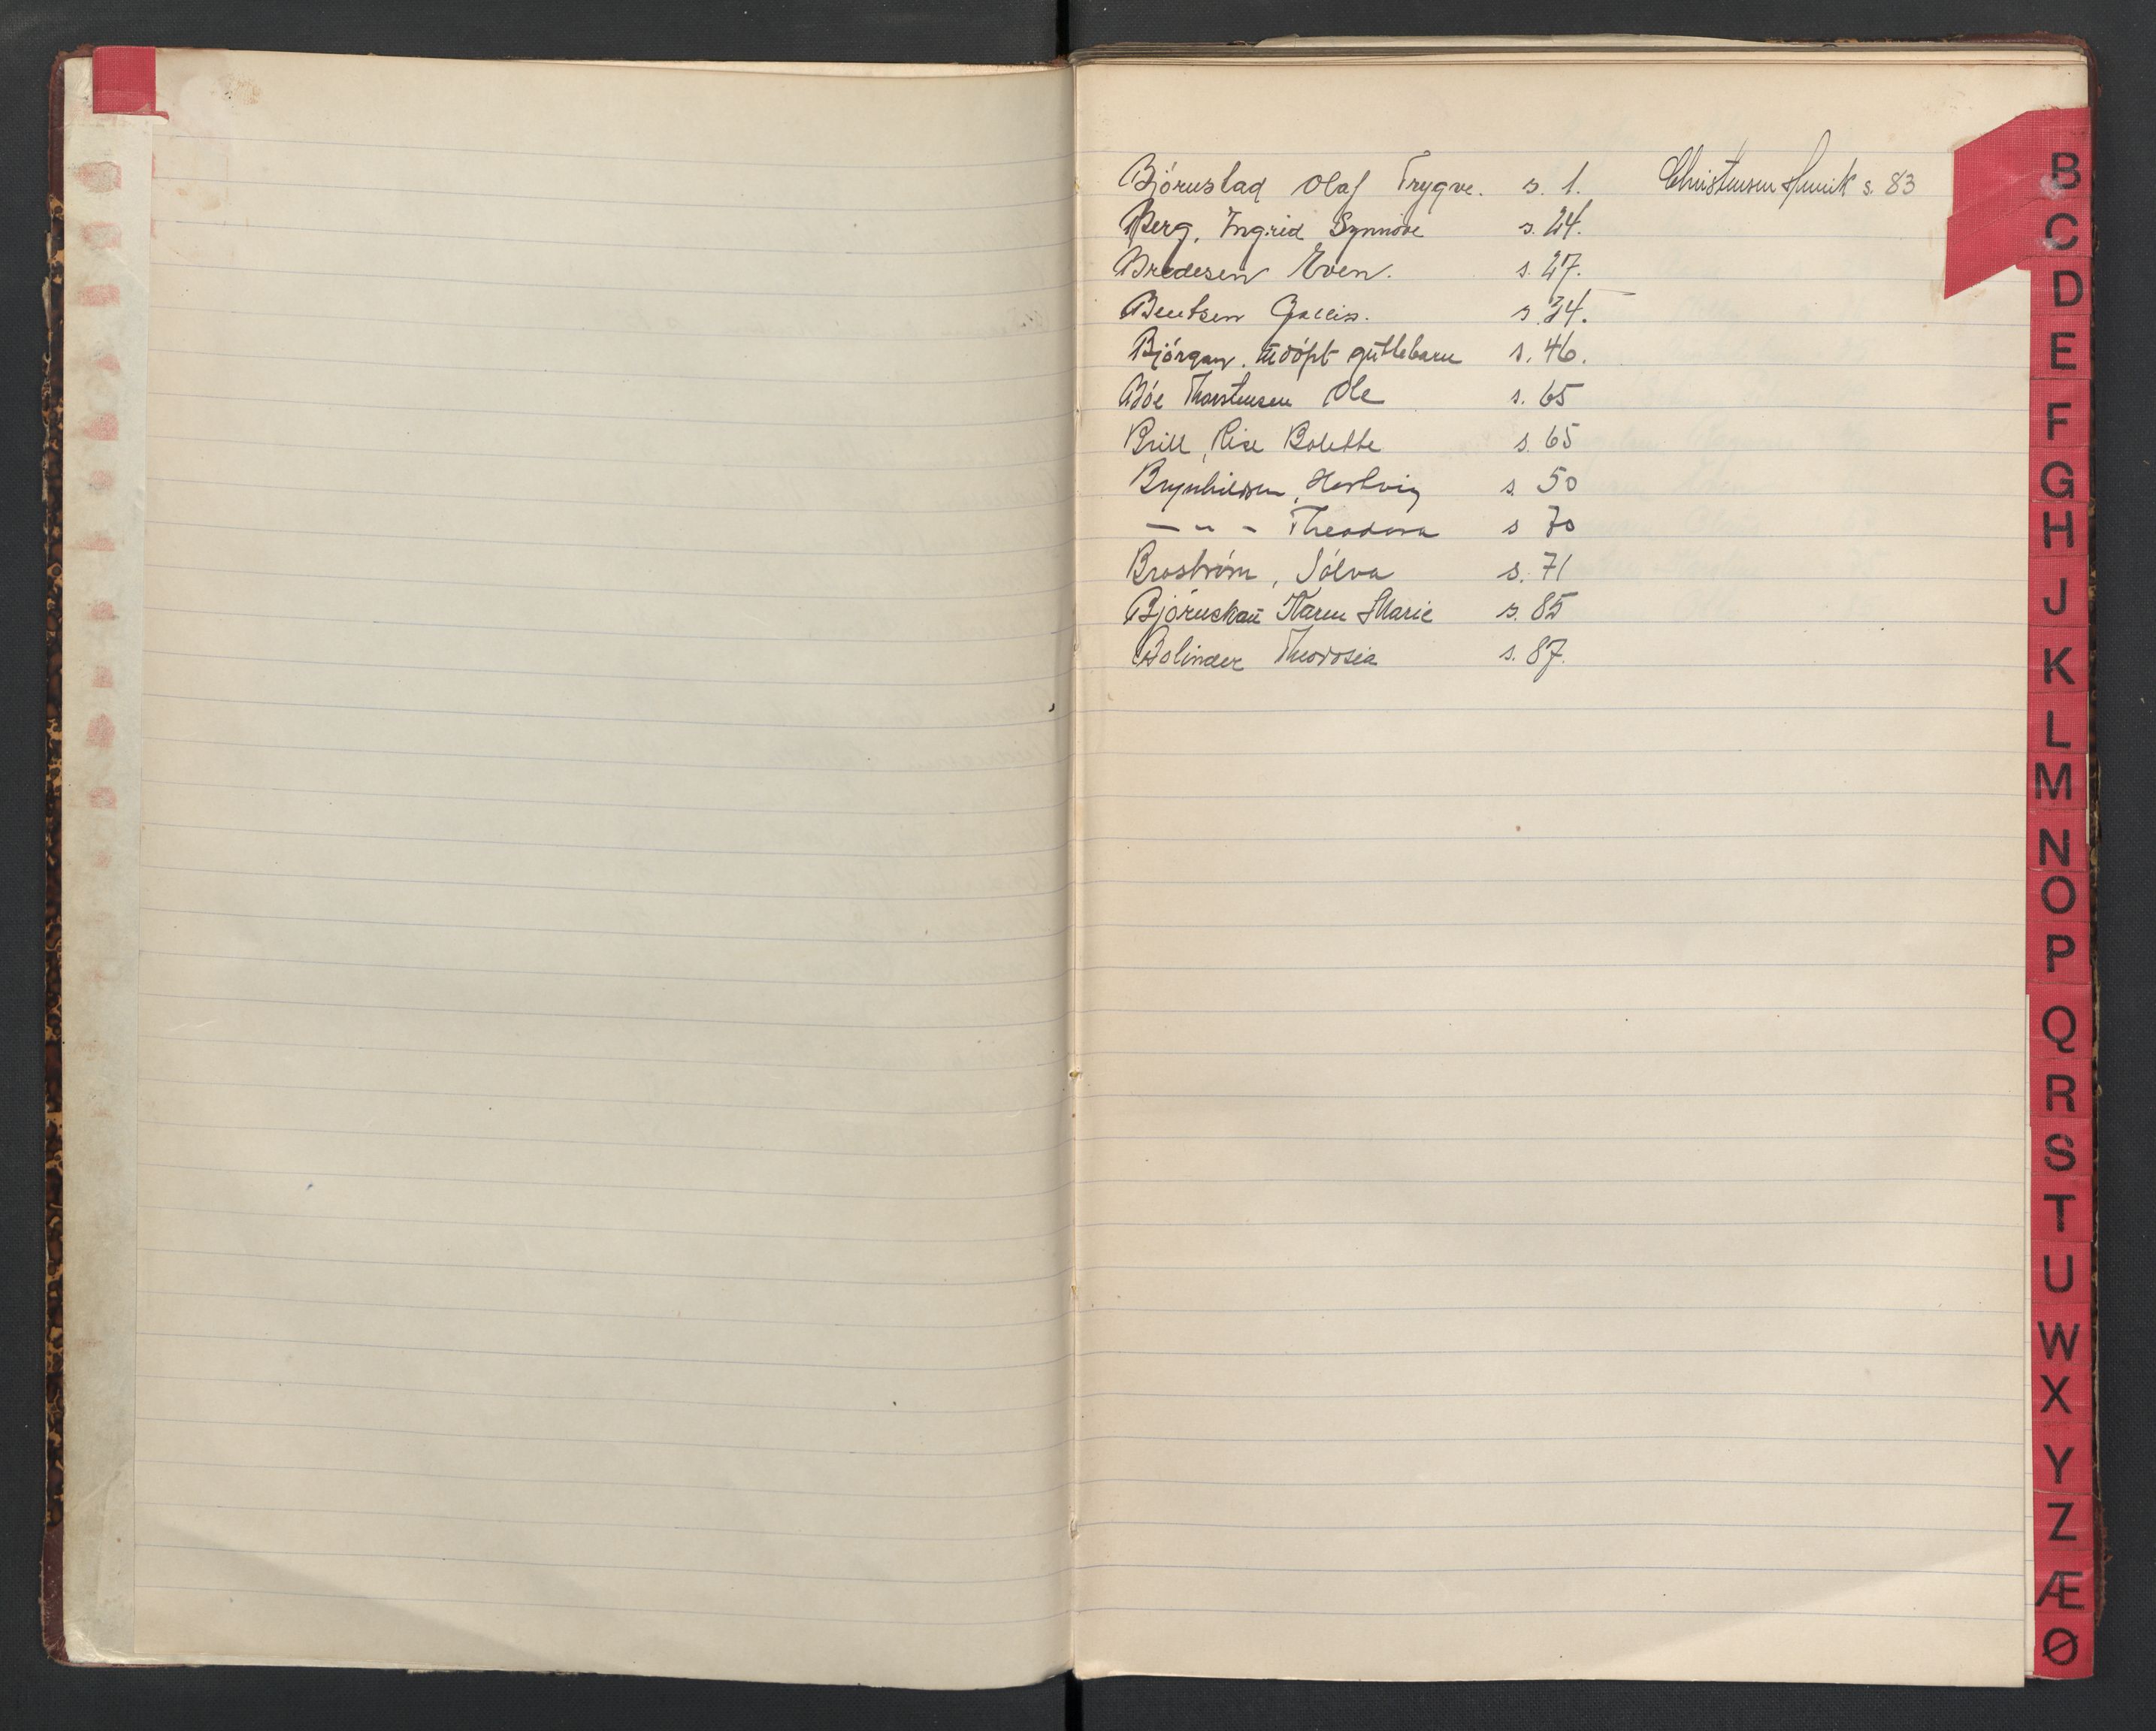 Bjórnstad Olaf Trygve. s. 1.
Berg, Ingrid Synnöve s. 24.
Bredesen Even. s. 27.
Bentsen s. 34.
Björgan. udöpt guttebarn s. 46.
Böe Thorstensen Ole s. 65
Brill, Lise Bolette s. 65
Brynhildsen, Hertvig s. 50
— " - Theodora s 70
Broström, Sólva s. 71
Björnskau Karen Marie s. 85
Bolinder Theodosia s. 87.
Christensen Henrik s. 83
B
C
D
E
F
G
H
J
K
L
M
N
O
P
Q
R
S
T
U
W
X
Y
Z
Æ
Ø